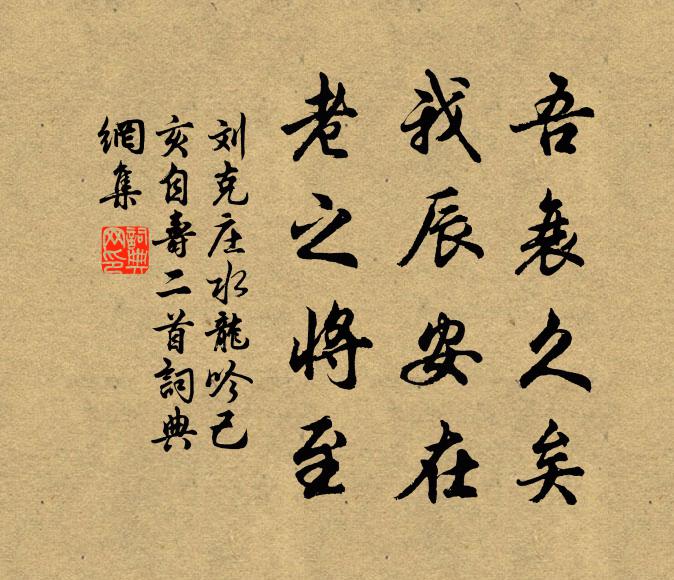 吾衰久矣
我辰安在
老之将至
刘克庄水龍吟己
亥自壽二首詞典
網集
詞典网印